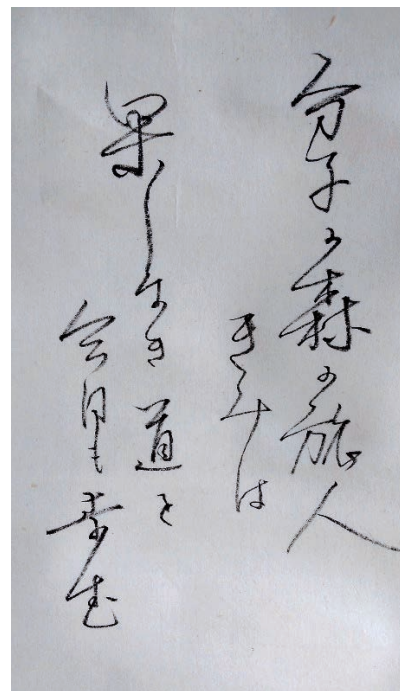 分子の森の旅人
きみは
果しなき道を
今日も歩む